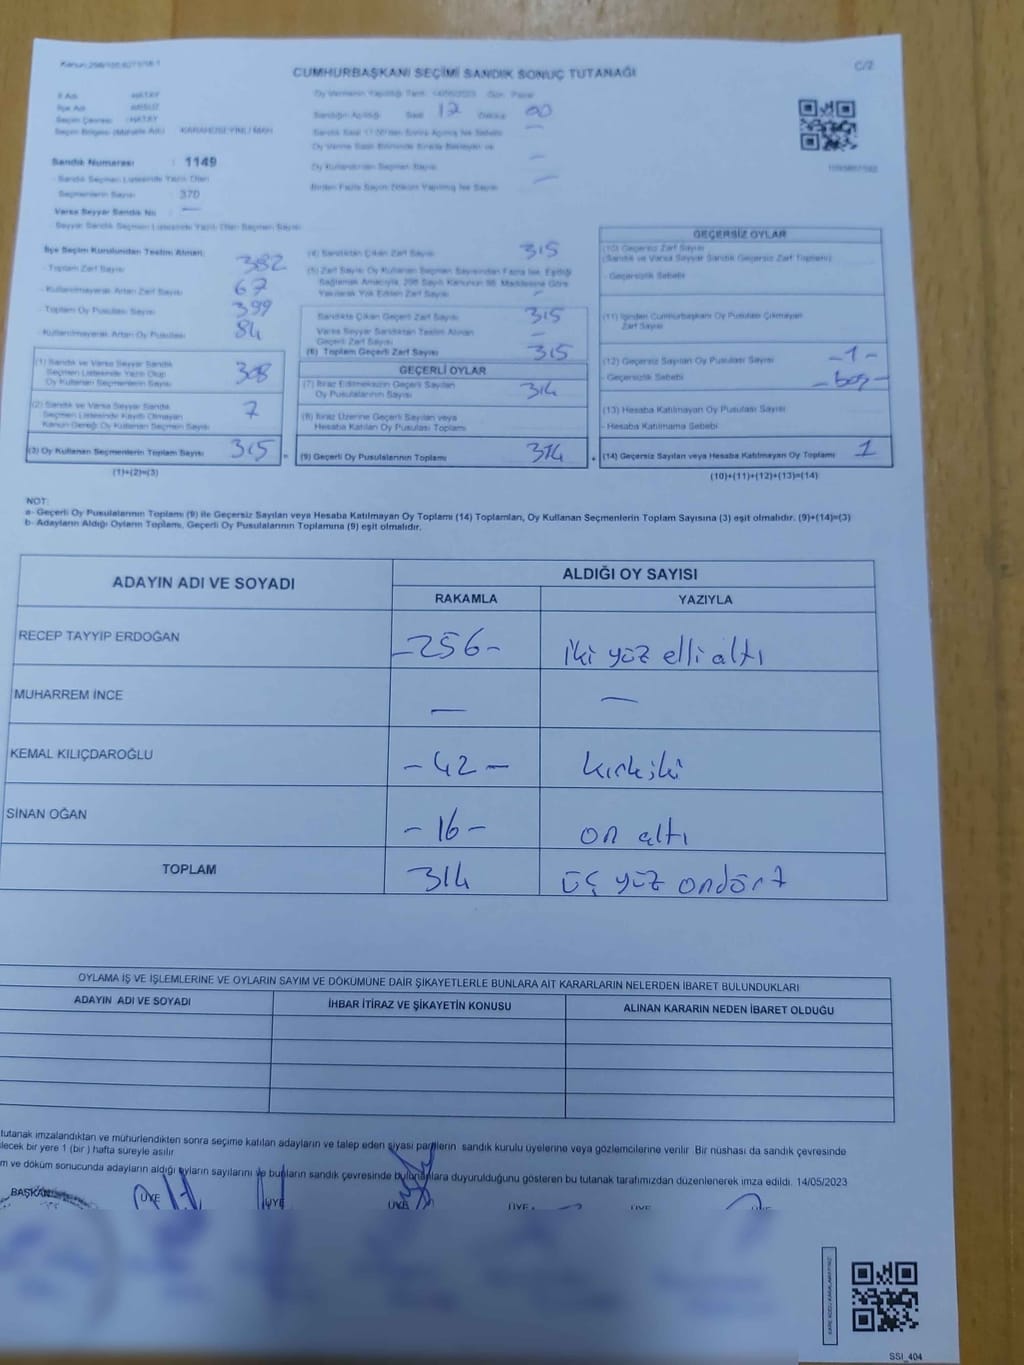 CUMHURBAŞKANI SEÇİMİ SANDIK SONUÇ TUTANAĞI
C/2
Oy Vermenin Yapıldığı Tarih 14/05/2023 Gün Pazar
İl Adı HATAY
İlçe Adı
Seçim Çevresi : HATAY
Sandığın Açıldığı Saat 17 Dakika 00
Sandık Numarası : 1149
- Sandık Seçmen Listesinde Yazılı Olan
Seçmenlerin Sayısı : 370
Varsa Seyyar Sandık No —
- Seyyar Sandık Seçmen Listesinde Yazılı Olan Seçmen Sayısı
Oy Kullandırılan Seçmen Sayısı —
İlçe Seçim Kurulundan Teslim Alınan:
- Toplam Zarf Sayısı 382
- Kullanılmayarak Artan Zarf Sayısı 67
- Toplam Oy Pusulası Sayısı 399
- Kullanılmayarak Artan Oy Pusulası 84
(1) Sandık ve Varsa Seyyar Sandık
Seçmen Listesinde Yazılı Olup
Oy Kullanan Seçmenlerin Sayısı 308
(2) Sandık ve Varsa Seyyar Sandık
Seçmen Listesinde Kayıtlı Olmayan
Kanun Gereği Oy Kullanan Seçmen Sayısı 7
(3) Oy Kullanan Seçmenlerin Toplam Sayısı 315
(1)+(2)=(3)
(4) Sandıktan Çıkan Zarf Sayısı 315
(5) Zarf Sayısı Oy Kullanan Seçmen Sayısından Fazla İse, Eşitliği
Sağlamak Amacıyla, 298 Sayılı Kanunun 98. Maddesine Göre
Yakılarak Yok Edilen Zarf Sayısı —
Sandıkta Çıkan Geçerli Zarf Sayısı 315
Varsa Seyyar Sandıktan Teslim Alınan
Geçerli Zarf Sayısı —
(6) Toplam Geçerli Zarf Sayısı 315
GEÇERLİ OYLAR
(7) İtiraz Edilmeksizin Geçerli Sayılan
Oy Pusulalarının Sayısı 314
(8) İtiraz Üzerine Geçerli Sayılan veya
Hesaba Katılan Oy Pusulası Toplamı
(9) Geçerli Oy Pusulalarının Toplamı 314
GEÇERSİZ OYLAR
(10) Geçersiz Zarf Sayısı
(Sandık ve Varsa Seyyar Sandık Geçersiz Zarf Toplamı)
- Geçersizlik Sebebi
(11) İçinden Cumhurbaşkanı Oy Pusulası Çıkmayan
Zarf Sayısı
(12) Geçersiz Sayılan Oy Pusulası Sayısı -1-
- Geçersizlik Sebebi -boş-
(13) Hesaba Katılmayan Oy Pusulası Sayısı
- Hesaba Katılmama Sebebi
(14) Geçersiz Sayılan veya Hesaba Katılmayan Oy Toplamı 1
(10)+(11)+(12)+(13)=(14)
NOT:
a- Geçerli Oy Pusulalarının Toplamı (9) ile Geçersiz Sayılan veya Hesaba Katılmayan Oy Toplamı (14) Toplamları, Oy Kullanan Seçmenlerin Toplam Sayısına (3) eşit olmalıdır. (9)+(14)=(3)
b- Adayların Aldığı Oyların Toplamı, Geçerli Oy Pusulalarının Toplamına (9) eşit olmalıdır.
ADAYIN ADI VE SOYADI
ALDIĞI OY SAYISI
RAKAMLA YAZIYLA
RECEP TAYYİP ERDOĞAN -256- iki yüz elli altı
MUHARREM İNCE — —
KEMAL KILIÇDAROĞLU -42- kırkiki
SİNAN OĞAN -16- on altı
TOPLAM 314 üç yüz ondört
OYLAMA İŞ VE İŞLEMLERİNE VE OYLARIN SAYIM VE DÖKÜMÜNE DAİR ŞİKAYETLERLE BUNLARA AİT KARARLARIN NELERDEN İBARET BULUNDUKLARI
ADAYIN ADI VE SOYADI İHBAR İTİRAZ VE ŞİKAYETİN KONUSU ALINAN KARARIN NEDEN İBARET OLDUĞU
tutanak imzalandıktan ve mühürlendikten sonra seçime katılan adayların ve talep eden siyasi partilerin sandık kurulu üyelerine veya gözlemcilerine verilir Bir nüshası da sandık çevresinde
lecek bir yere 1 (bir ) hafta süreyle asılır
m ve döküm sonucunda adayların aldığı oyların sayılarını ve bunların sandık çevresinde bulunanlara duyurulduğunu gösteren bu tutanak tarafımızdan düzenlenerek imza edildi. 14/05/2023
BAŞKAN ÜYE ÜYE ÜYE ÜYE ÜYE ÜYE
SSİ_404